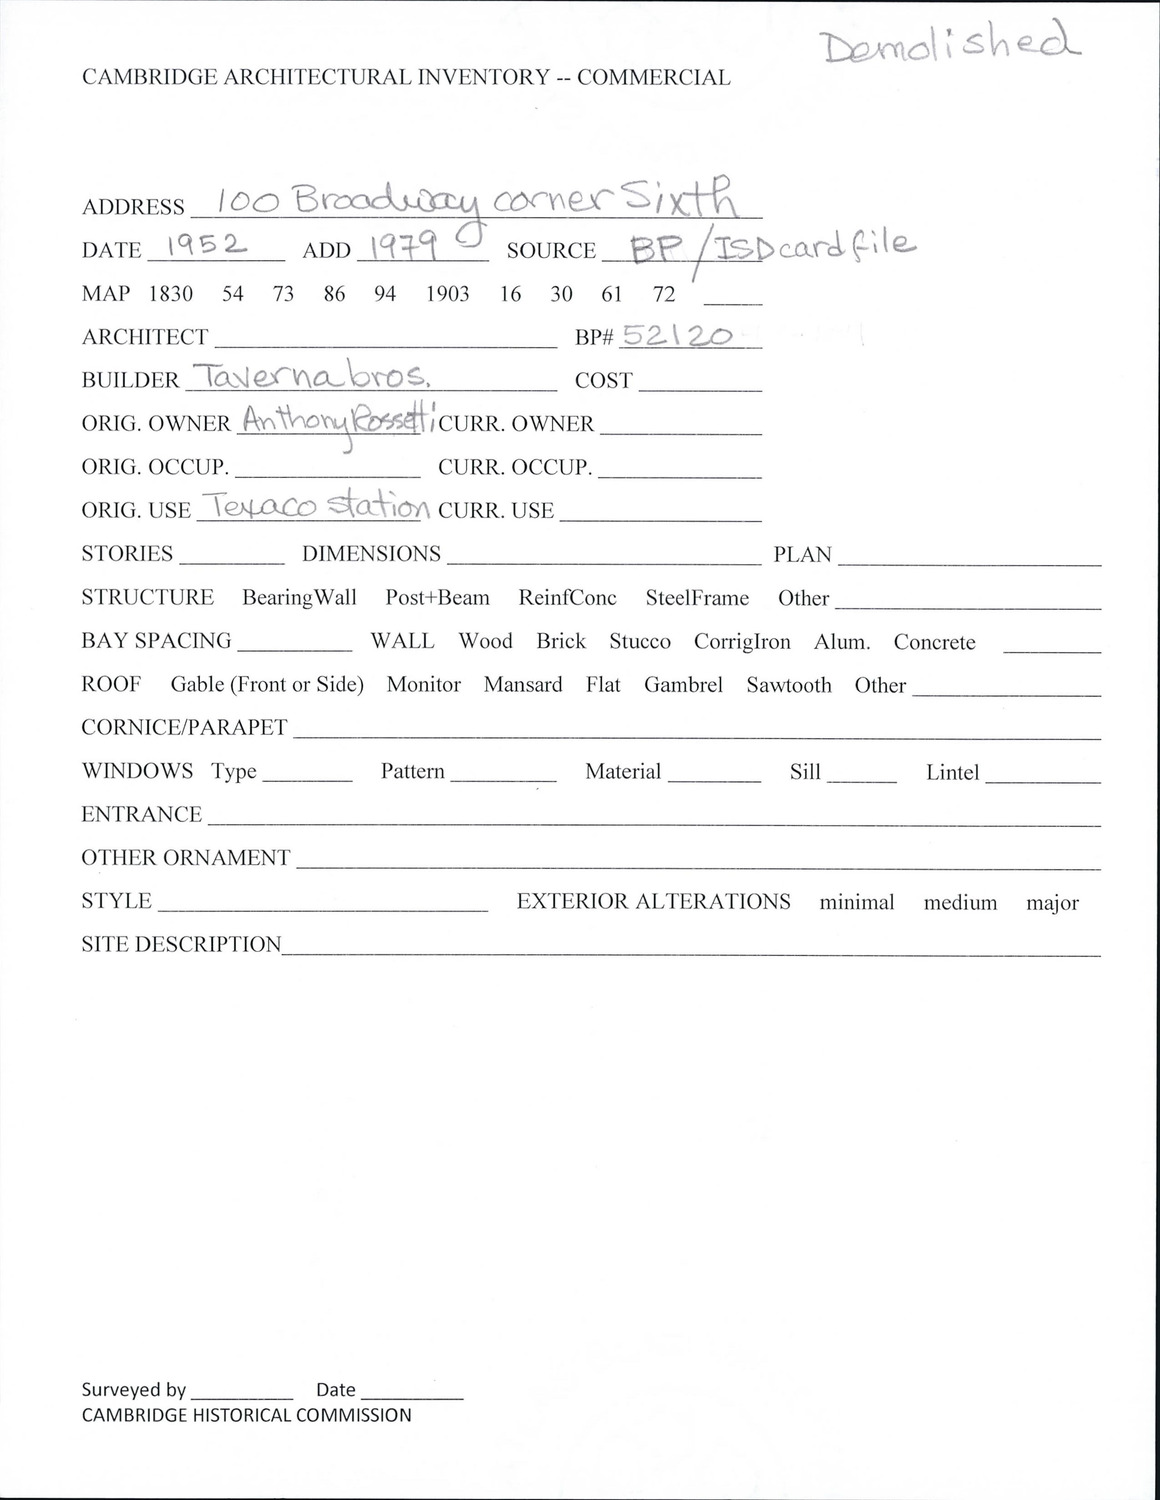 Demolished
CAMBRIDGE ARCHITECTURAL INVENTORY -- COMMERCIAL
ADDRESS 100 Broadway corner Sixth
DATE 1952 ADD 1979 SOURCE BP/ISD card file
MAP 1830 54 73 86 94 1903 16 30 61 72 ____
ARCHITECT ____ BP# 52120
BUILDER Taverna bros. COST ____
ORIG. OWNER Anthony Rossetti CURR. OWNER ____
ORIG. OCCUP. ____ CURR. OCCUP. ____
ORIG. USE Texaco station CURR. USE ____
STORIES ____ DIMENSIONS ____ PLAN ____
STRUCTURE BearingWall Post+Beam ReinfConc SteelFrame Other ____
BAY SPACING ____ WALL Wood Brick Stucco CorrigIron Alum. Concrete ____
ROOF Gable (Front or Side) Monitor Mansard Flat Gambrel Sawtooth Other ____
CORNICE/PARAPET ____
WINDOWS Type ____ Pattern ____ Material ____ Sill ____ Lintel ____
ENTRANCE ____
OTHER ORNAMENT ____
STYLE ____ EXTERIOR ALTERATIONS minimal medium major
SITE DESCRIPTION ____
Surveyed by ____ Date ____
CAMBRIDGE HISTORICAL COMMISSION